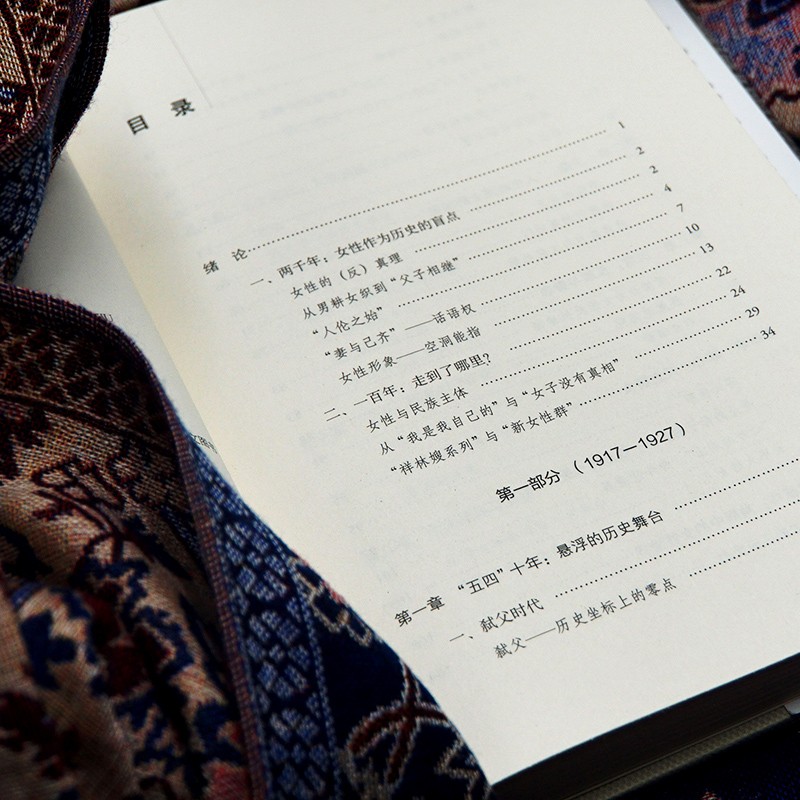 目 录
绪 论……1
一、两千年：女性作为历史的盲点……2
女性的（反）真理……2
从男耕女织到“父子相继”……4
“人伦之始”……7
“妻与己齐”——话语权……10
女性形象——空洞能指……13
二、一百年：走到了哪里？……22
女性与民族主体……24
从“我是我自己的”与“女子没有真相”……29
“祥林嫂系列”与“新女性群”……34
第一部分（1917—1927）
第一章 “五四”十年：悬浮的历史舞台……
一、弑父时代……
弑父——历史坐标上的零点……